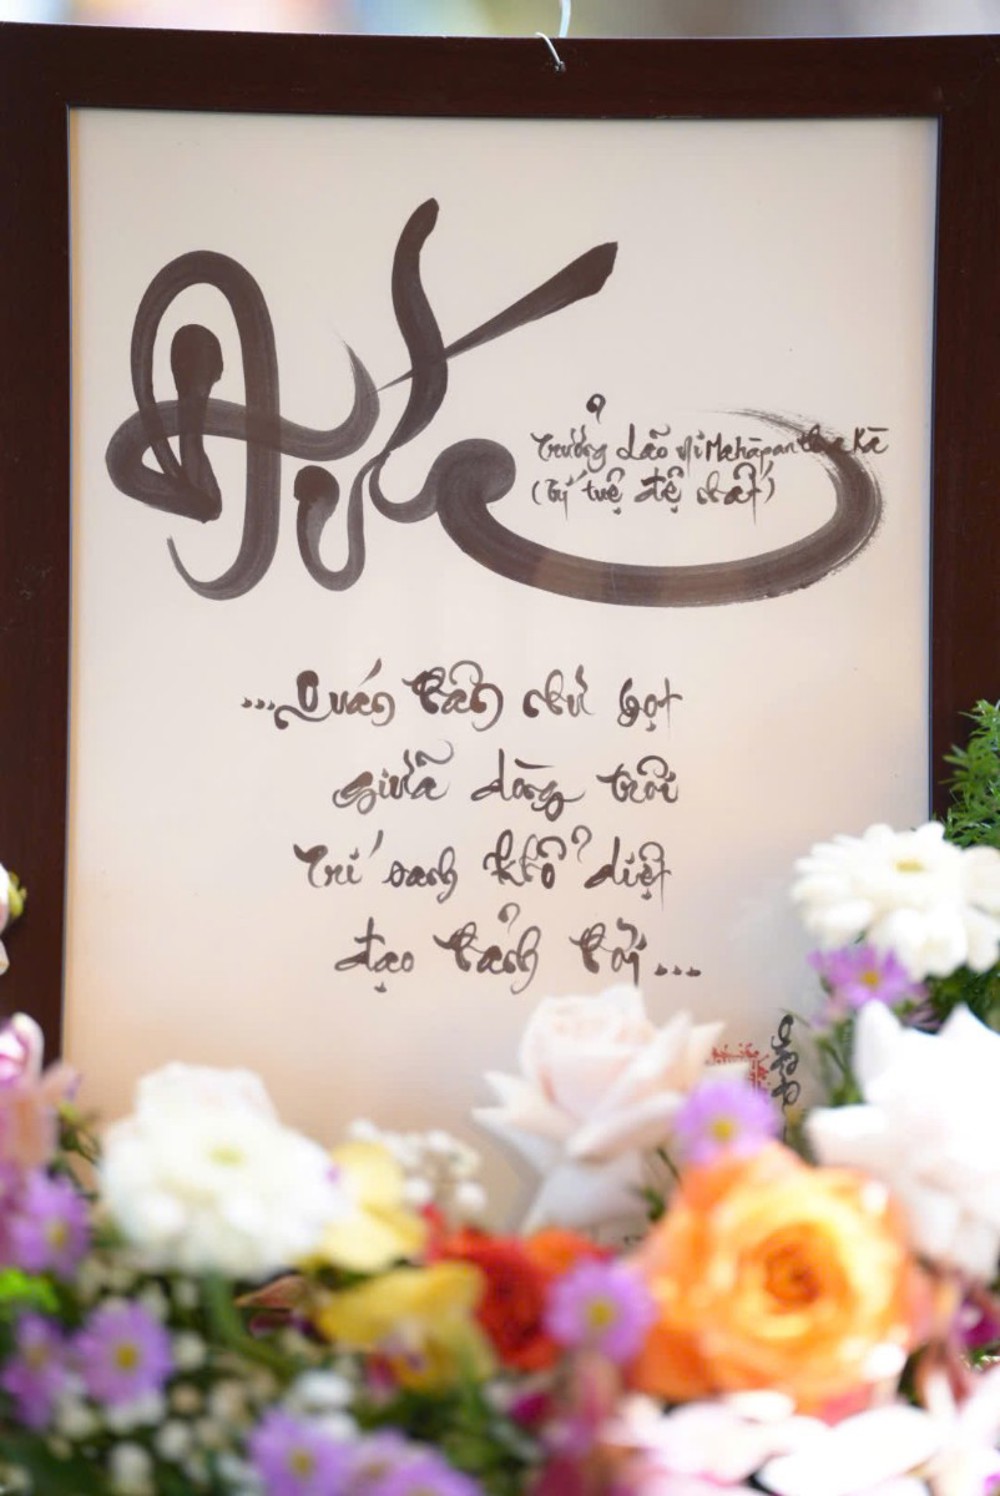 Trưởng lão ni Mahāpanthakā
(Tỷ tuệ đệ nhất)
...Quán thân như bọt
giữa dòng trôi
Trí sanh khổ diệt
đạo thảnh thơi...